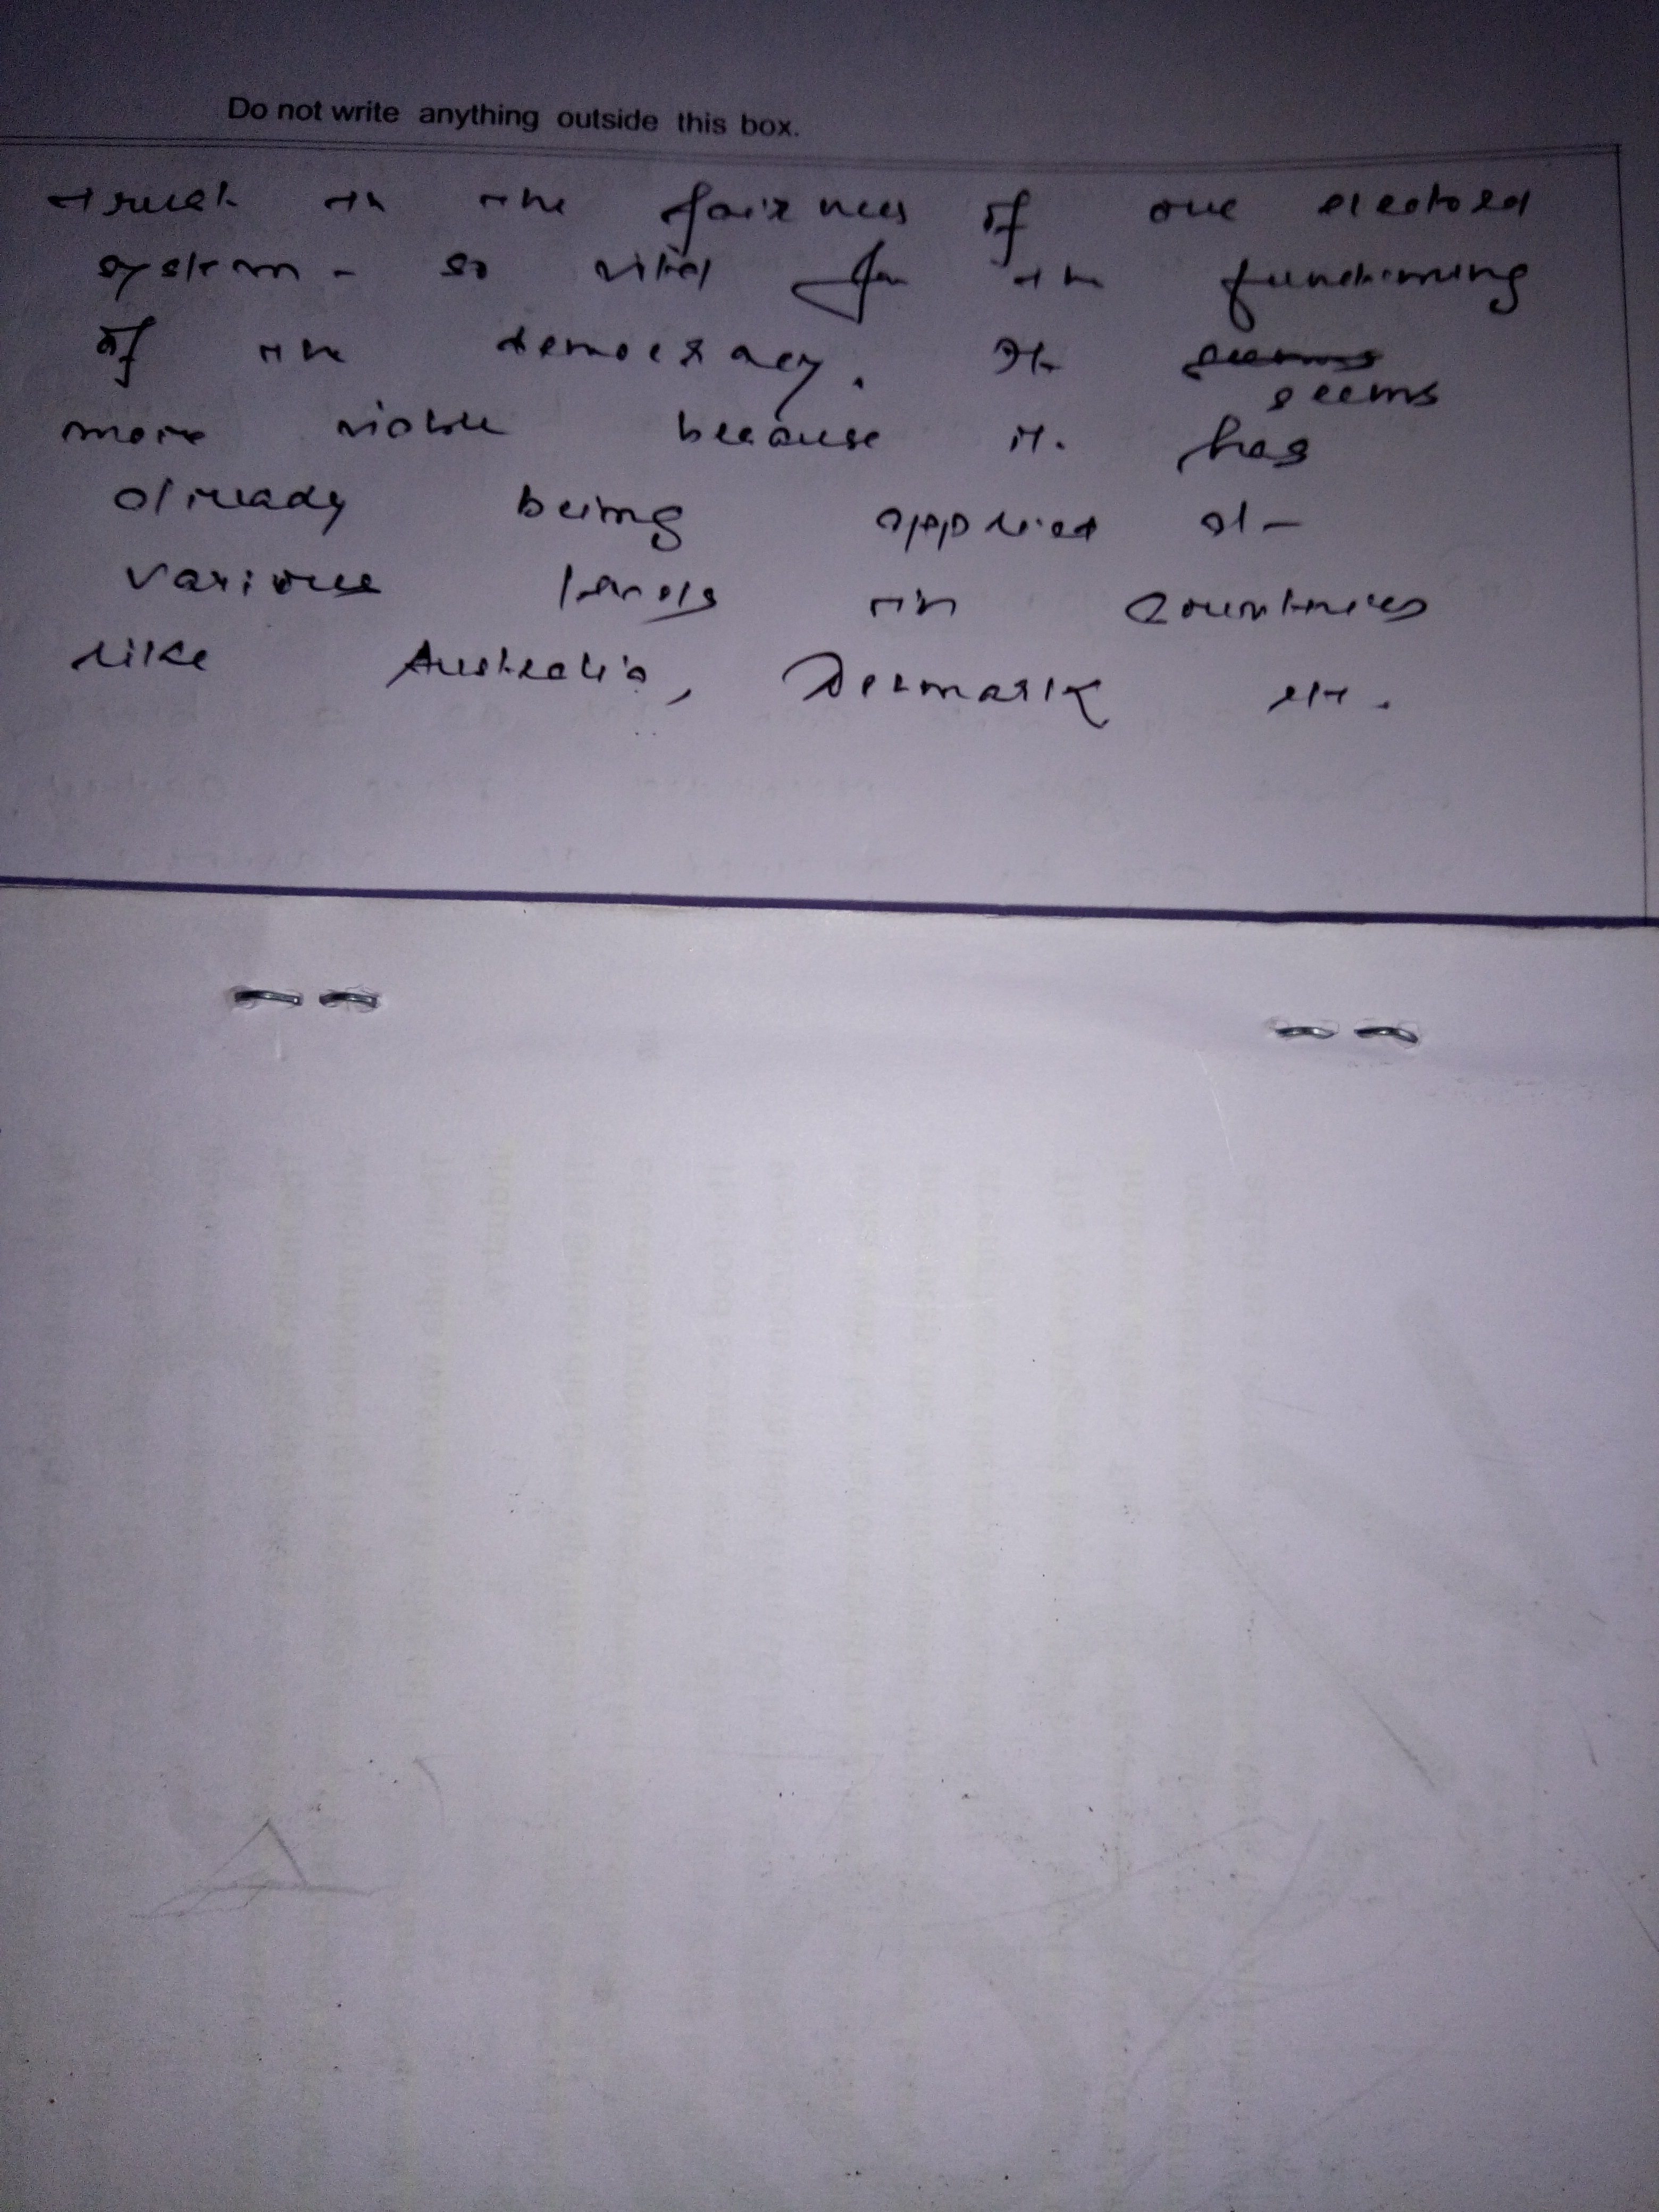 Do not write anything outside this box.
trust in the fairness of our electoral
system - so vital for the functioning
of the democracy. It seems
seems
more viable because it has
already being applied at
various levels in countries
like Australia, Denmark etc.